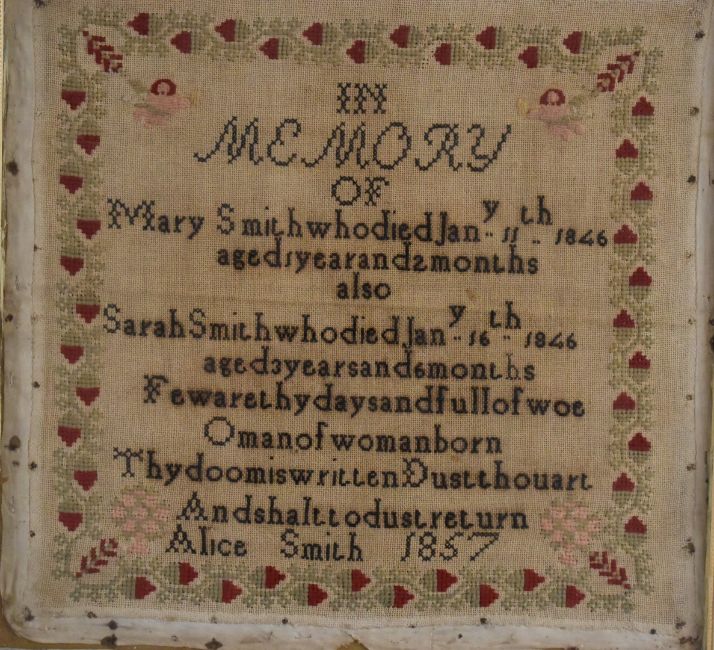 IN
MEMORY
OF
Mary Smithwhodied Jany 11th 1846
aged1yearand2months
also
SarahSmithwhodied Jany 16th 1846
aged3yearsand6months
Fewarethydaysandfullofwoe
Omanofwomanborn
ThydoomiswrittenDustthouart
Andshalttodustreturn
Alice Smith 1857